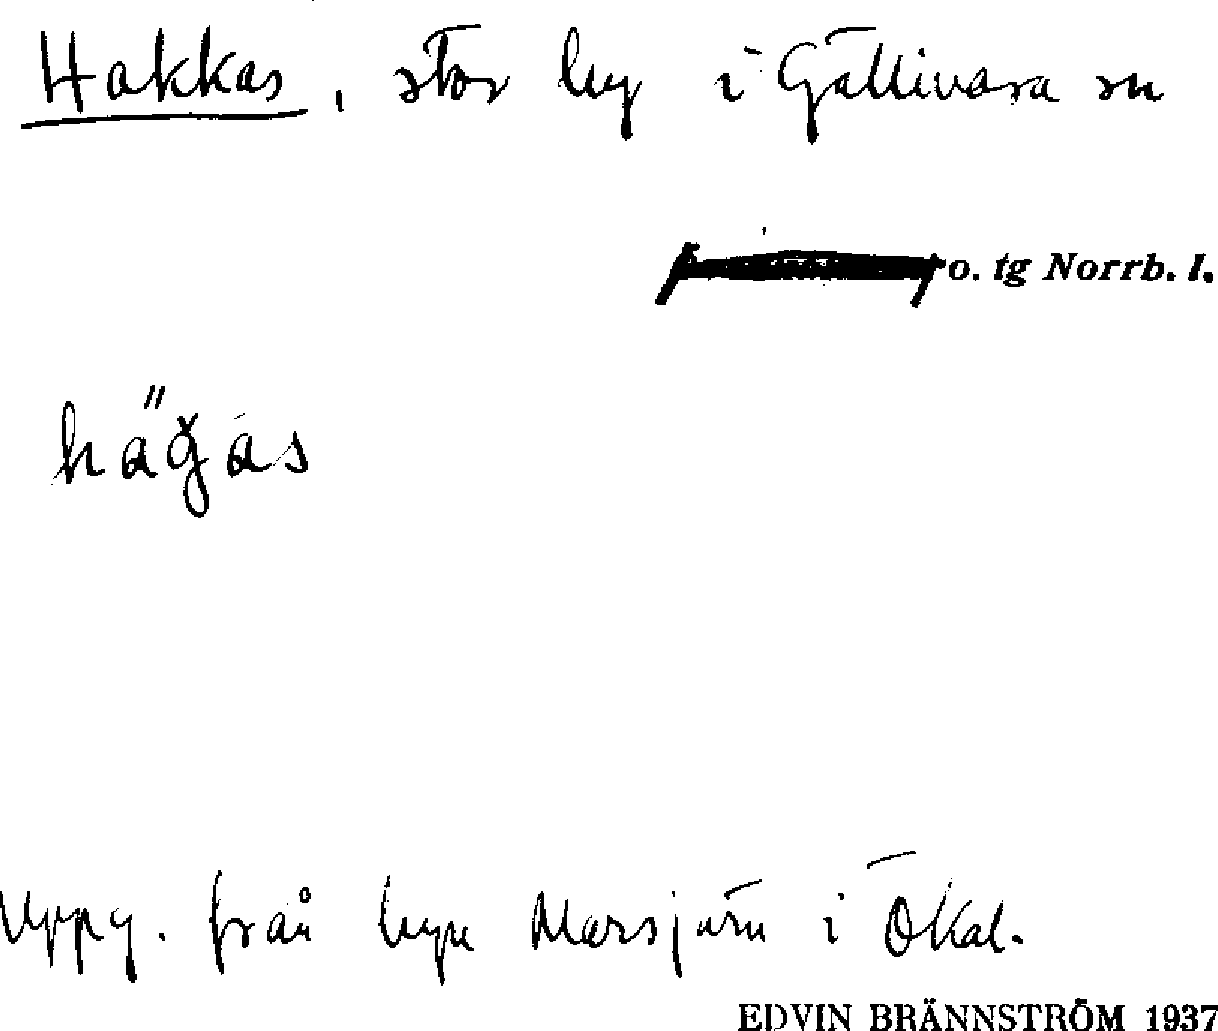 Hakkas, stor by i Gällivara sn
o. tg Norrb. l.
Uppg. från byn Marsjärn i ÖKal.
EDVIN BRÄNNSTRÖM 1937